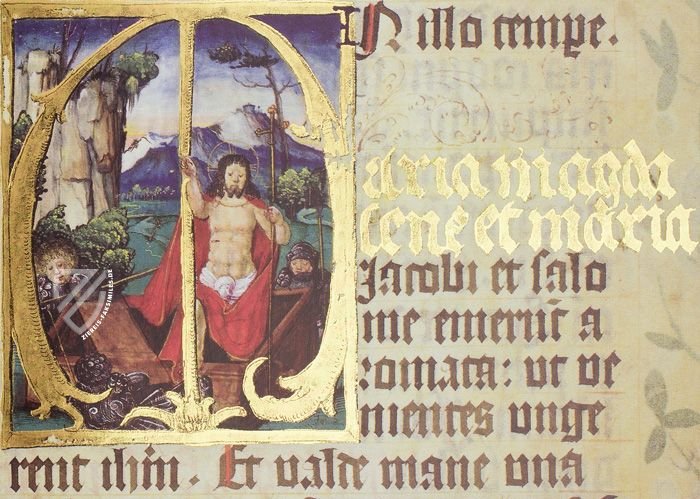 IN illo tempe.
Maria magda
lene et maria
Jacobi et salo
me emerut a
romata: ut ve
nientes unge
rent ihm. Et valde mane una
ZIEREIS-FAKSIMILES.DE